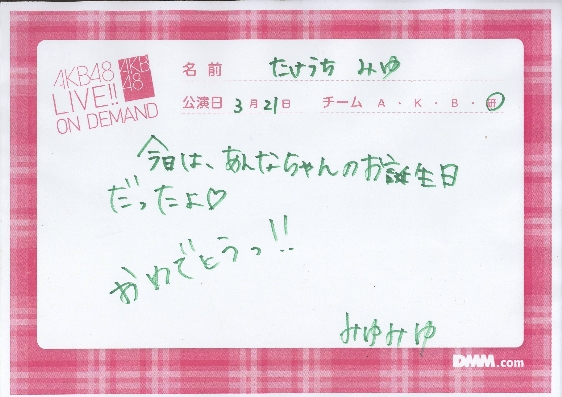 AKB48
LIVE!!
ON DEMAND
AKB
48
名前 たけうち みゆ
公演日 3月21日 チーム A・K・B・研
今日は、あんなちゃんのお誕生日
だったよ♡
おめでとうっ!!
みゆみゆ
DMM.com